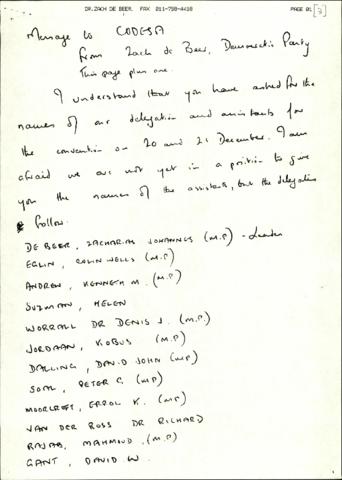 DR. ZACH DE BEER. FAX 011-788-4418 PAGE 01 [3]
Message to CODESA
from Zach de Beer, Democratic Party
This page plus one.
I understand that you have asked for the
names of our delegation and assistants for
the convention on 20 and 21 December. I am
afraid we are not yet in a position to give
you the names of the assistants, but the delegation
follow.
DE BEER, ZACHARIAS JOHANNES (M.P) - Leader
EGLIN, COLIN WELLS (M.P)
ANDREW, KENNETH M. (M.P)
SUZMAN, HELEN
WORRALL DR DENIS J. (M.P.)
JORDAAN, KOBUS (M.P)
DALLING, DAVID JOHN (MP)
SOAL, PETER G. (MP)
MOORCROFT, ERROL K. (MP)
VAN DER ROSS DR RICHARD
RAJAB, MAHMOUD. (M.P)
GANT, DAVID W.